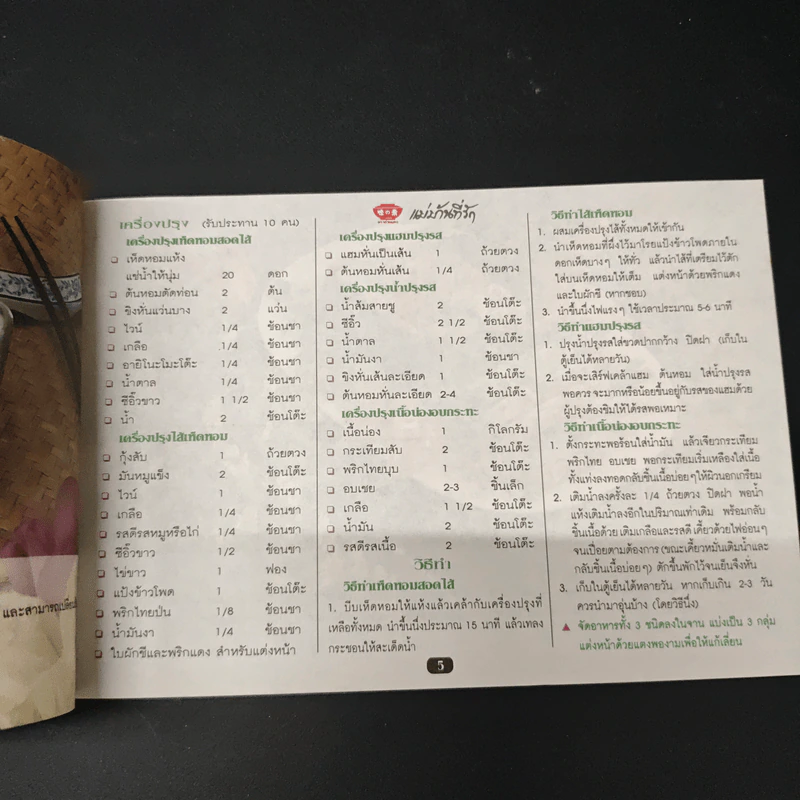 และสามารถเปลี่ยน
เครื่องปรุง (รับประทาน 10 คน)
เครื่องปรุงเห็ดหอมสอดไส้
เห็ดหอมแห้ง
แช่น้ำให้นุ่ม 20 ดอก
ต้นหอมตัดท่อน 2 ต้น
ขิงหั่นแว่นบาง 2 แว่น
ไวน์ 1/4 ช้อนชา
เกลือ 1/4 ช้อนชา
อายิโนะโมะโต๊ะ 1/4 ช้อนชา
น้ำตาล 1/4 ช้อนชา
ซีอิ๊วขาว 1 1/2 ช้อนชา
น้ำ 2 ช้อนโต๊ะ
เครื่องปรุงไส้เห็ดหอม
กุ้งสับ 1 ถ้วยตวง
มันหมูแข็ง 2 ช้อนโต๊ะ
ไวน์ 1 ช้อนชา
เกลือ 1/4 ช้อนชา
รสดีรสหมูหรือไก่ 1/4 ช้อนชา
ซีอิ๊วขาว 1/2 ช้อนชา
ไข่ขาว 1 ฟอง
แป้งข้าวโพด 1 ช้อนโต๊ะ
พริกไทยป่น 1/8 ช้อนชา
น้ำมันงา 1/4 ช้อนชา
ใบผักชีและพริกแดง สำหรับแต่งหน้า
味の素 แม่บ้านที่รัก
เครื่องปรุงแฮมปรุงรส
แฮมหั่นเป็นเส้น 1 ถ้วยตวง
ต้นหอมหั่นเส้น 1/4 ถ้วยตวง
เครื่องปรุงน้ำปรุงรส
น้ำส้มสายชู 2 ช้อนโต๊ะ
ซีอิ๊ว 2 1/2 ช้อนโต๊ะ
น้ำตาล 1 1/2 ช้อนโต๊ะ
น้ำมันงา 1 ช้อนชา
ขิงหั่นเส้นละเอียด 1 ช้อนโต๊ะ
ต้นหอมหั่นละเอียด 2-4 ช้อนโต๊ะ
เครื่องปรุงเนื้อน่องอบกระทะ
เนื้อน่อง 1 กิโลกรัม
กระเทียมสับ 2 ช้อนโต๊ะ
พริกไทยบุบ 1 ช้อนโต๊ะ
อบเชย 2-3 ชิ้นเล็ก
เกลือ 1 1/2 ช้อนโต๊ะ
น้ำมัน 2 ช้อนโต๊ะ
รสดีรสเนื้อ 2 ช้อนโต๊ะ
วิธีทำ
วิธีทำเห็ดหอมสอดไส้
1. บีบเห็ดหอมให้แห้งแล้วเคล้ากับเครื่องปรุงที่
เหลือทั้งหมด นำขึ้นนึ่งประมาณ 15 นาที แล้วเทลง
กระชอนให้สะเด็ดน้ำ
5
วิธีทำไส้เห็ดหอม
1. ผสมเครื่องปรุงไส้ทั้งหมดให้เข้ากัน
2. นำเห็ดหอมที่ผึ่งไว้มาโรยแป้งข้าวโพดภายใน
ดอกเห็ดบางๆ ให้ทั่ว แล้วนำไส้ที่เตรียมไว้ตัก
ใส่บนเห็ดหอมให้เต็ม แต่งหน้าด้วยพริกแดง
และใบผักชี (หากชอบ)
3. นำขึ้นนึ่งไฟแรงๆ ใช้เวลาประมาณ 5-6 นาที
วิธีทำแฮมปรุงรส
1. ปรุงน้ำปรุงรสใส่ขวดปากกว้าง ปิดฝา (เก็บใน
ตู้เย็นได้หลายวัน)
2. เมื่อจะเสิร์ฟเคล้าแฮม ต้นหอม ใส่น้ำปรุงรส
พอควร จะมากหรือน้อยขึ้นอยู่กับรสของแฮมด้วย
ผู้ปรุงต้องชิมให้ได้รสพอเหมาะ
วิธีทำเนื้อน่องอบกระทะ
1. ตั้งกระทะพอร้อนใส่น้ำมัน แล้วเจียวกระเทียม
พริกไทย อบเชย พอกระเทียมเริ่มเหลืองใส่เนื้อ
ทั้งแท่งลงทอดกลับชิ้นเนื้อบ่อยๆให้ผิวนอกเกรียม
2. เติมน้ำลงครั้งละ 1/4 ถ้วยตวง ปิดฝา พอน้ำ
แห้งเติมน้ำลงอีกในปริมาณเท่าเดิม พร้อมกลับ
ชิ้นเนื้อด้วย เติมเกลือและรสดี เคี่ยวด้วยไฟอ่อนๆ
จนเปื่อยตามต้องการ (ขณะเคี่ยวหมั่นเติมน้ำและ
กลับชิ้นเนื้อบ่อยๆ) ตักขึ้นพักไว้จนเย็นจึงหั่น
3. เก็บในตู้เย็นได้หลายวัน หากเก็บเกิน 2-3 วัน
ควรนำมาอุ่นบ้าง (โดยวิธีนึ่ง)
▲ จัดอาหารทั้ง 3 ชนิดลงในจาน แบ่งเป็น 3 กลุ่ม
แต่งหน้าด้วยแตงพองามเพื่อให้แก้เลี่ยน